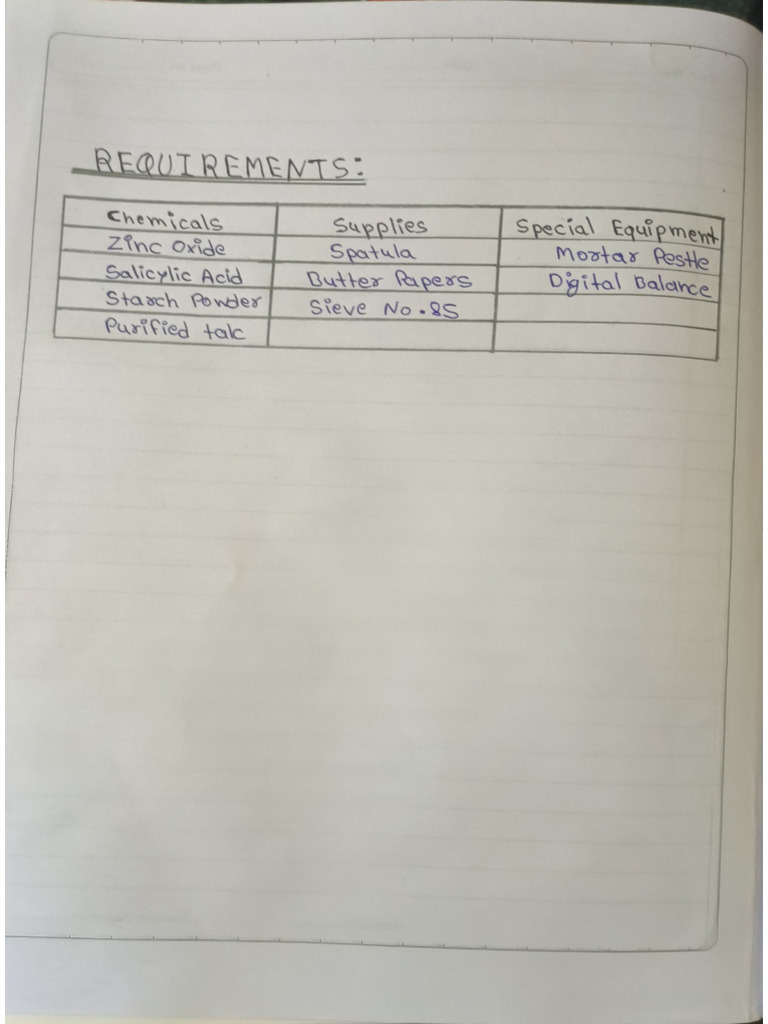 REQUIREMENTS:
Chemicals Supplies Special Equipment
Zinc Oxide Spatula Mortar Pestle
Salicylic Acid Butter Papers Digital Balance
Starch Powder Sieve No. 85
Purified talc